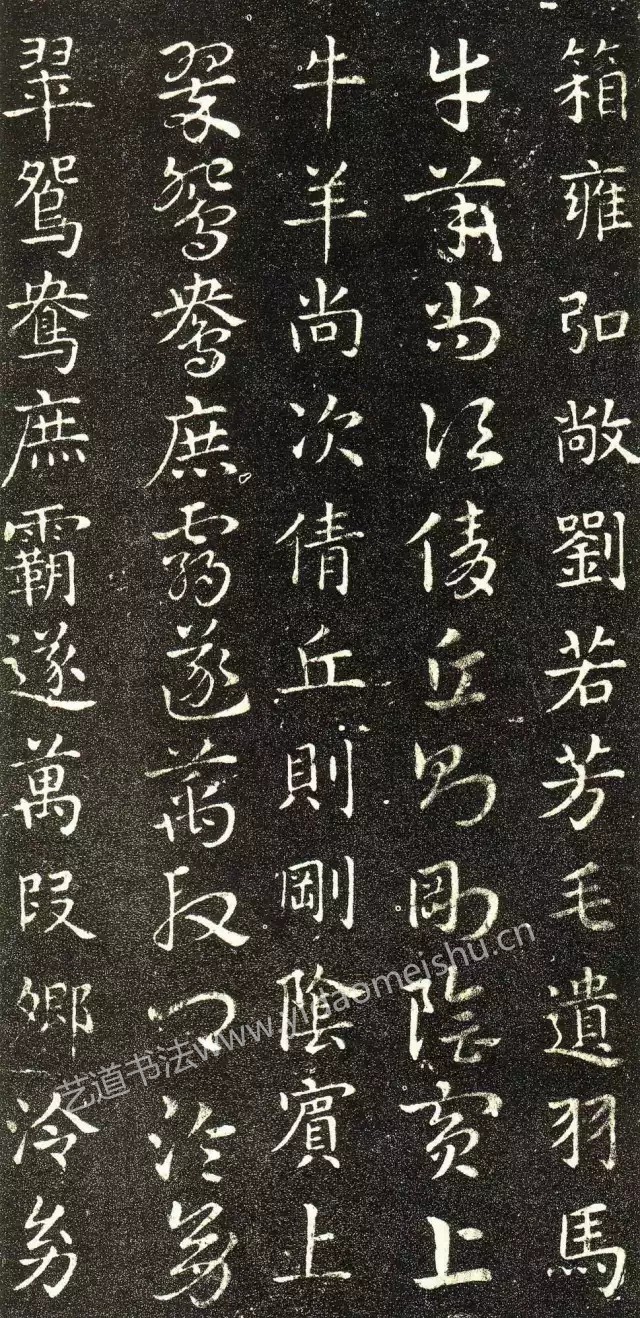 箱雍弘敞劉若芳毛遺羽馬
牛羊尚次倩丘則剛陰賓上
牛羊尚次倩丘則剛陰賓上
翠鴛鴦庶霸遂萬段卿泠幼
翠鴛鴦庶霸遂萬段卿泠幼
艺道书法www.yidaomeishu.cn